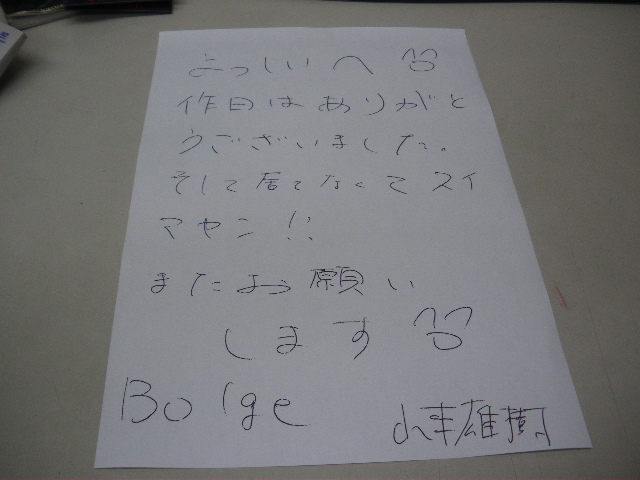 よっしいへ
作日はありがと
うございました。
そして居てなくてスイ
マセン!!
またお願い
します
Bolge
雄樹